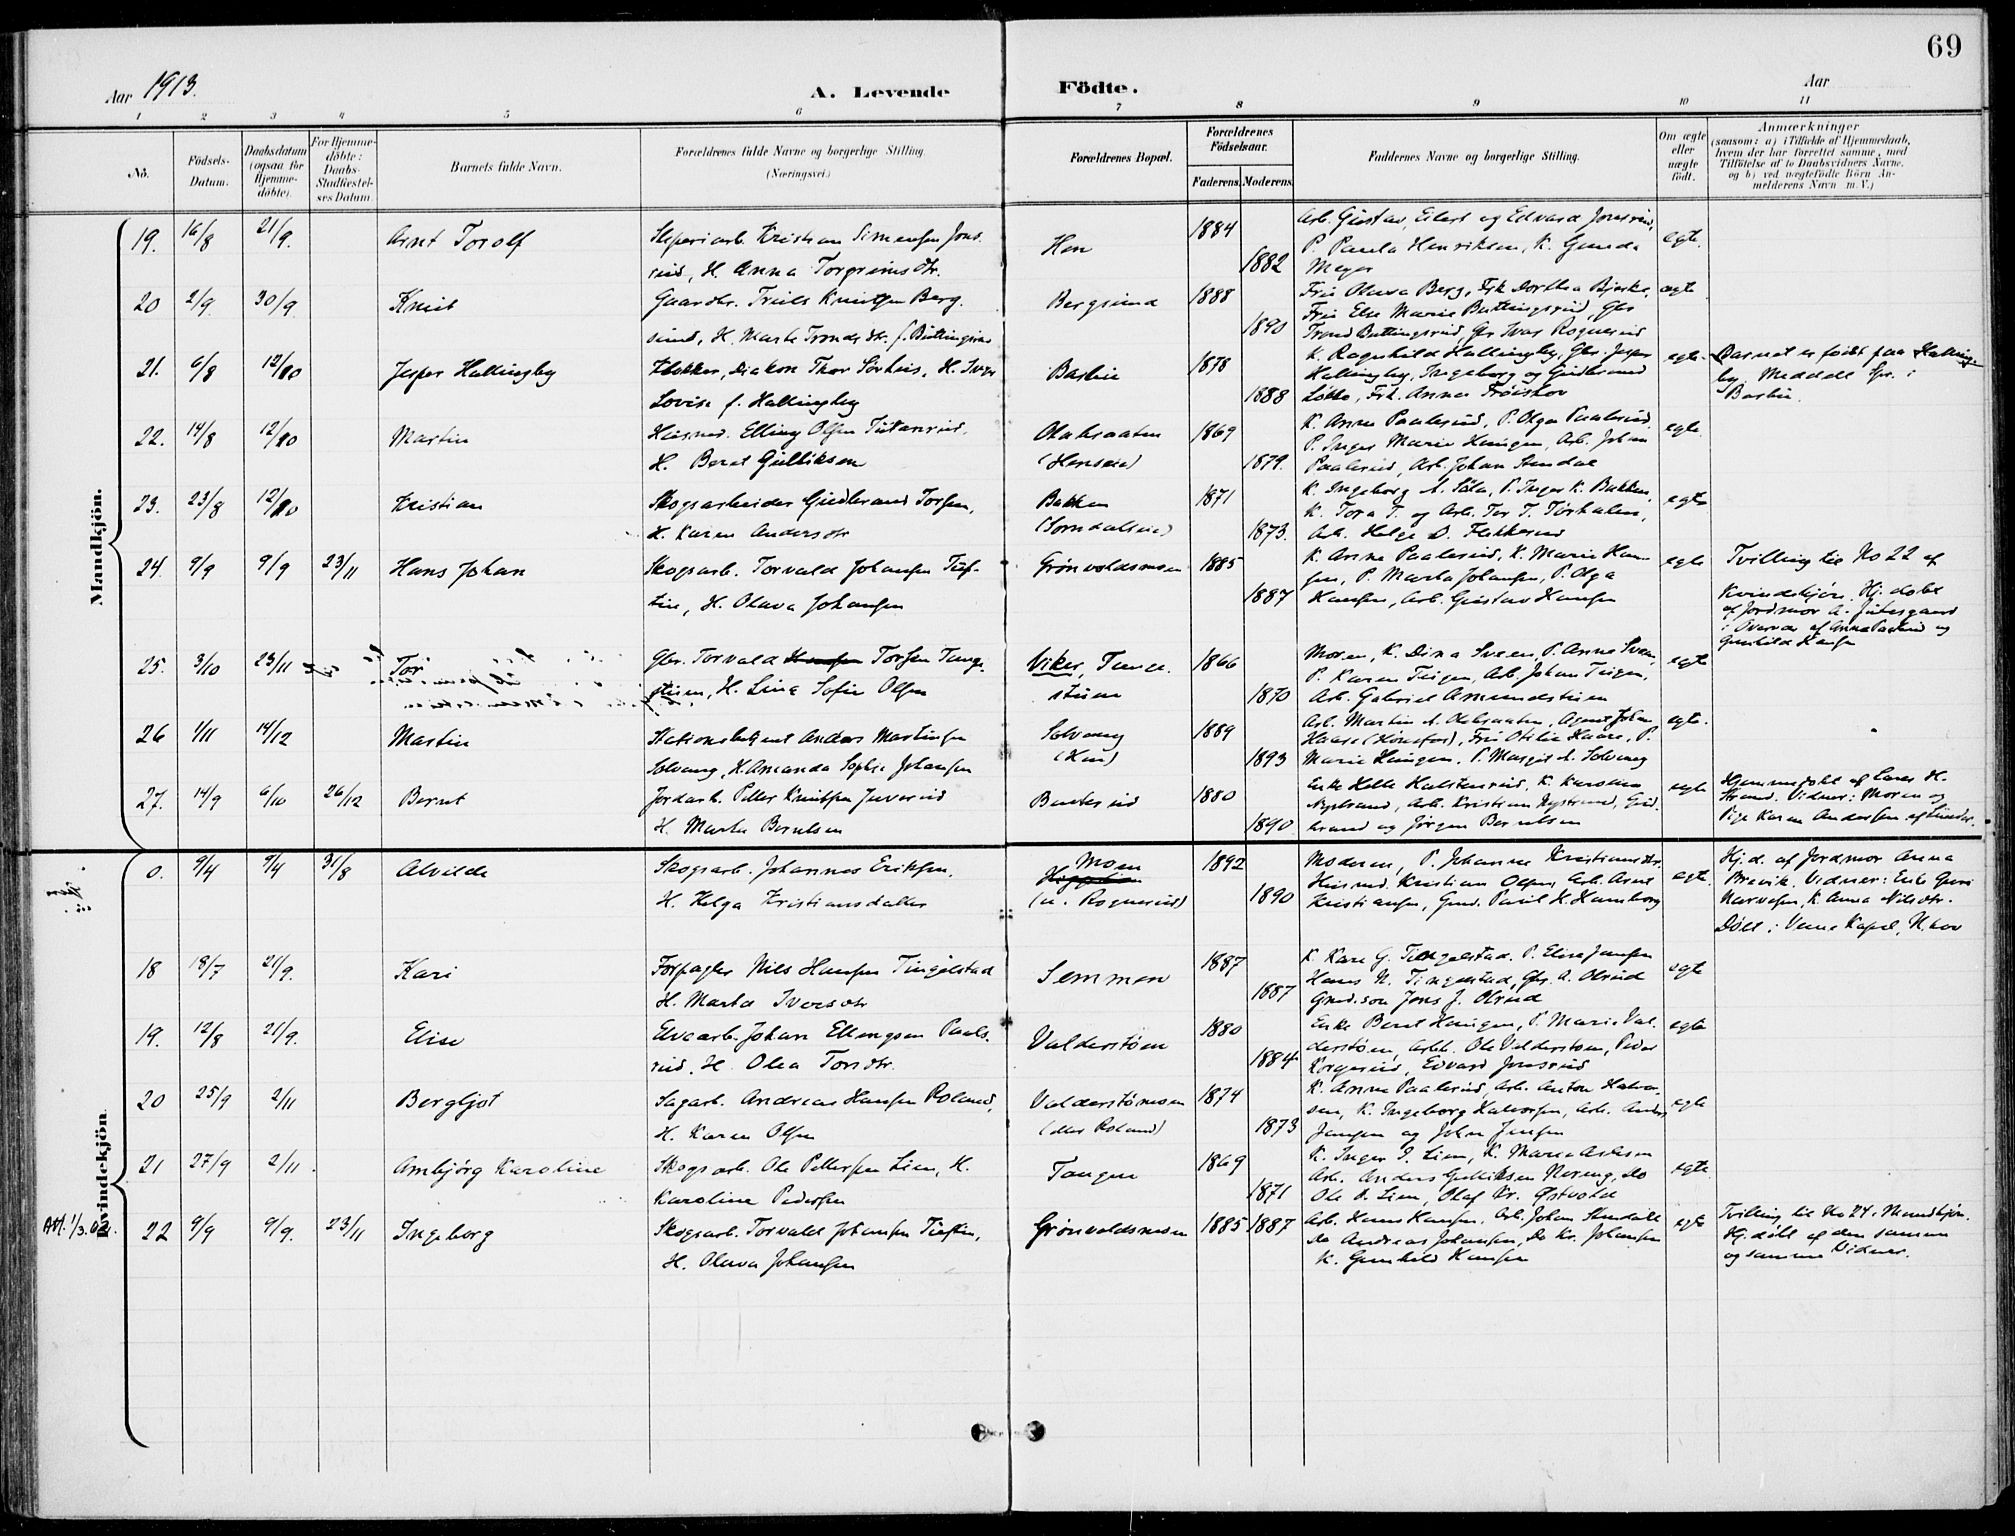 69
Aar 1913.
A. Levende Födte.
Aar
1 2 3 4 5 6 7 8 9 10 11
No.
Födsels-Datum.
Daabsdatum (ogsaa for Hjemme-döbte).
For Hjemme-döbte: Daabs-Stadfæstel-ses Datum.
Barnets fulde Navn.
Forældrenes fulde Navne og borgerlige Stilling. (Næringsvei.)
Forældrenes Bopæl.
Forældrenes Födselsaar.
Faderens. Moderens.
Faddernes Navne og borgerlige Stilling.
Om ægte eller uægte födt.
Anmærkninger
(saasom: a) i Tilfælde af Hjemmedaab, hvem der har forrettet samme, med Tilföielse af to Daabsvidners Navne, og b) ved uægtefödte Börn An-melderens Navn m. V.)
Mandkjön.
19. 16/8 21/9. Arnt Torolf
Sliperiarb. Kristian Simensen Jons-
rud, H. Anna Torgrimsdtr.
Hen 1884 1882
Arb. Gustav, Eilert og Edvard Jonsrud,
P. Paula Henriksen, K. Gunda
Meyer
egte.
20 2/9. 30/9. Knut
Gaardbr. Truls Knutsen Berg-
sund, H. Marte Trondsdtr. f. Buttingsrud
Bergsund 1888 1890
Fru Olava Berg, Frk Dorthea Bjerke,
Fru Else Marie Buttingsrud, Gbr
Trond Buttingsrud, Gbr Ivar Rognerud
egte
21. 6/8 12/10 Jesper Hallingby
Klokker, Diakon Thor Sørhus, H. Inga
Lovise f. Hallingby
Barbu 1878 1888
K. Ragnhild Hallingby, Gbr. Jesper
Hallingby, Ingeborg og Gudbrand
Løkko, Frk. Anna Frøishov
egte.
Barnet er født paa Halling-
by. Meddelt Spr. i
Barbu.
22. 14/8 12/10 Martin
Husmd. Elling Olsen Tutanrud,
H. Beret Gulliksen
Olabraaten
(Henseie)
1869 1879.
K. Anne Paalsrud, P. Olga Paalsrud
P. Inger Marie Haugen, Arb. Johan
Paalsrud, Arb. Johan Stendal
egte.
23. 23/8 12/10 Kristian
Skogsarbeider Gudbrand Torsen,
H. Karen Andersdtr
Bakken
(Somdalseie)
1871 1873.
K. Ingeborg A. , P. Inger K. Bakken,
K. Tora T. og Arb. Tor T. ,
Arb. Helge O. Flakkerud
egte
24. 9/9 9/9 23/11 Hans Johan
Skogsarb. Torvald Johansen Tuf-
tin, H. Olava Johansen
Grønvoldsmoen 1885 1887
K. Anne Paalsrud, K. Marie Han-
sen, P. Marta Johansen, P. Olga
Hansen, Arb. Gustav Hansen
egte
Tvilling til No 22 af
Kvindekjøn. Hj. døbt
af Jordmor A. Jutesgaard
i Overvær af Anne Paalsrud og
Gunhild Hansen
25. 3/10 23/11 Tor
Gbr. Torvald Torsen Tange-
stuen, H. Lina Sofie Olsen
Viker, Tange-
stuen
1866 1870
Moren, K. Dina Sveen, P. Anna Sveen,
P. Karen Teigen, Arb. Johan Teigen,
Arb. Gabriel Amundstuen
egte
26 1/11 14/12 Martin
Stationsbetjent Anders Martinsen
Solvang, H. Amanda Sophie Johansen
Solvang
(Hen)
1889 1893
Arb. Martin A. Olabraaten, Agent Johan
Haare (Hønefos), Fru Otilie Haare, P.
Marie Haugen, P. Margit A. Solvang
egte.
27. 14/9 6/10 26/12 Bernt
Jordarb. Petter Knutsen Juverud
H. Marta Berntsen
1880 1890
Enke Helle Halstenrud, K. Karoline
Nystrand, Arb. Kristian Nystrand, Gud-
brand og Jørgen Berntsen
egte
Hjemmedøbt af Lars H.
Strand. Vidner: Moren og
Pige Karen Andersen af Lunder.
Kvindekjön.
0. 9/4 9/4 31/8 Alvilde
Skogsarb. Johannes Eriksen,
H. Helga Kristiansdatter
Moen
(u. Rognerud)
1892 1890
Moderen, P. Johanne Kristiansdtr.
Husmd. Kristian Olsen, Arb. Arnt
Kristiansen, Gmd. Paul H. Hamborg
egte.
Hj.d. af Jordmor Anna
Brevik. Vidner: Enke Guri
Narvesen, K. Anna Nilsdtr.
Døbt i Veme Kapel, N.hov
18 18/7 21/9. Kari
Forpagter Nils Hansen Tingelstad
H. Marta Iversdtr
Semmen 1887 1887
K. Kari G. Tingelstad, P. Elise Jensen
Hans N. Tingelstad, Gbr. A. Olsrud
Gmd.søn Jens J. Olsrud
egte
19. 12/8 21/9. Elise
Elvearb. Johan Ellingsen Paals-
rud, H. Olea Torsdtr.
Valderstøen 1880 1884.
Enke Beret Haugen, P. Marie Val-
derstøen, Arb. Ole Valderstøen, Peder
Korgerud, Edvard Jonsrud
egte
20 25/9 2/11 Bergljot
Sagarb. Andreas Hansen Roland,
H. Karen Olsen
Valderstømoen
(eller Roland)
1874 1873
K. Anne Paalsrud, Arb. Anton Halvor-
sen, K. Ingeborg Halvorsen, Arb. Anders
Jensen og John Jensen
egte
21 27/9 2/11. Arnbjørg Karoline
Skogsarb. Ole Pettersen Lien, H.
Karoline Pedersen
Tangen 1869 1871
K. Inger P. Lien, K. Marie Aslesen
Arb. Anders Gulliksen Noreng, Do
Ole P. Lien, Olaf Kr. Østvold
egte
Att. 1/3.02.
22 9/9 9/9. 23/11 Ingeborg
Skogsarb. Torvald Johansen Tuftin,
H. Olava Johansen
Grønvoldsmoen 1885 1887
Arb. Hans Hansen, Arb. Johan Stendal
Do Andreas Johansen, Do Kr. Johansen
K. Gunhild Hansen
egte
Tvilling til No 24 i Mandkjøn.
Hj. døbt af den samme
og samme Vidner.